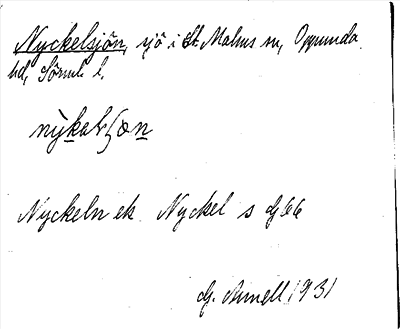 Nyckelsjön, sjö i St. Malms sn, Oppunda
hd, Sörml. l.
Nyckeln ek Nyckel s Gj 66
G. Arnell 1931